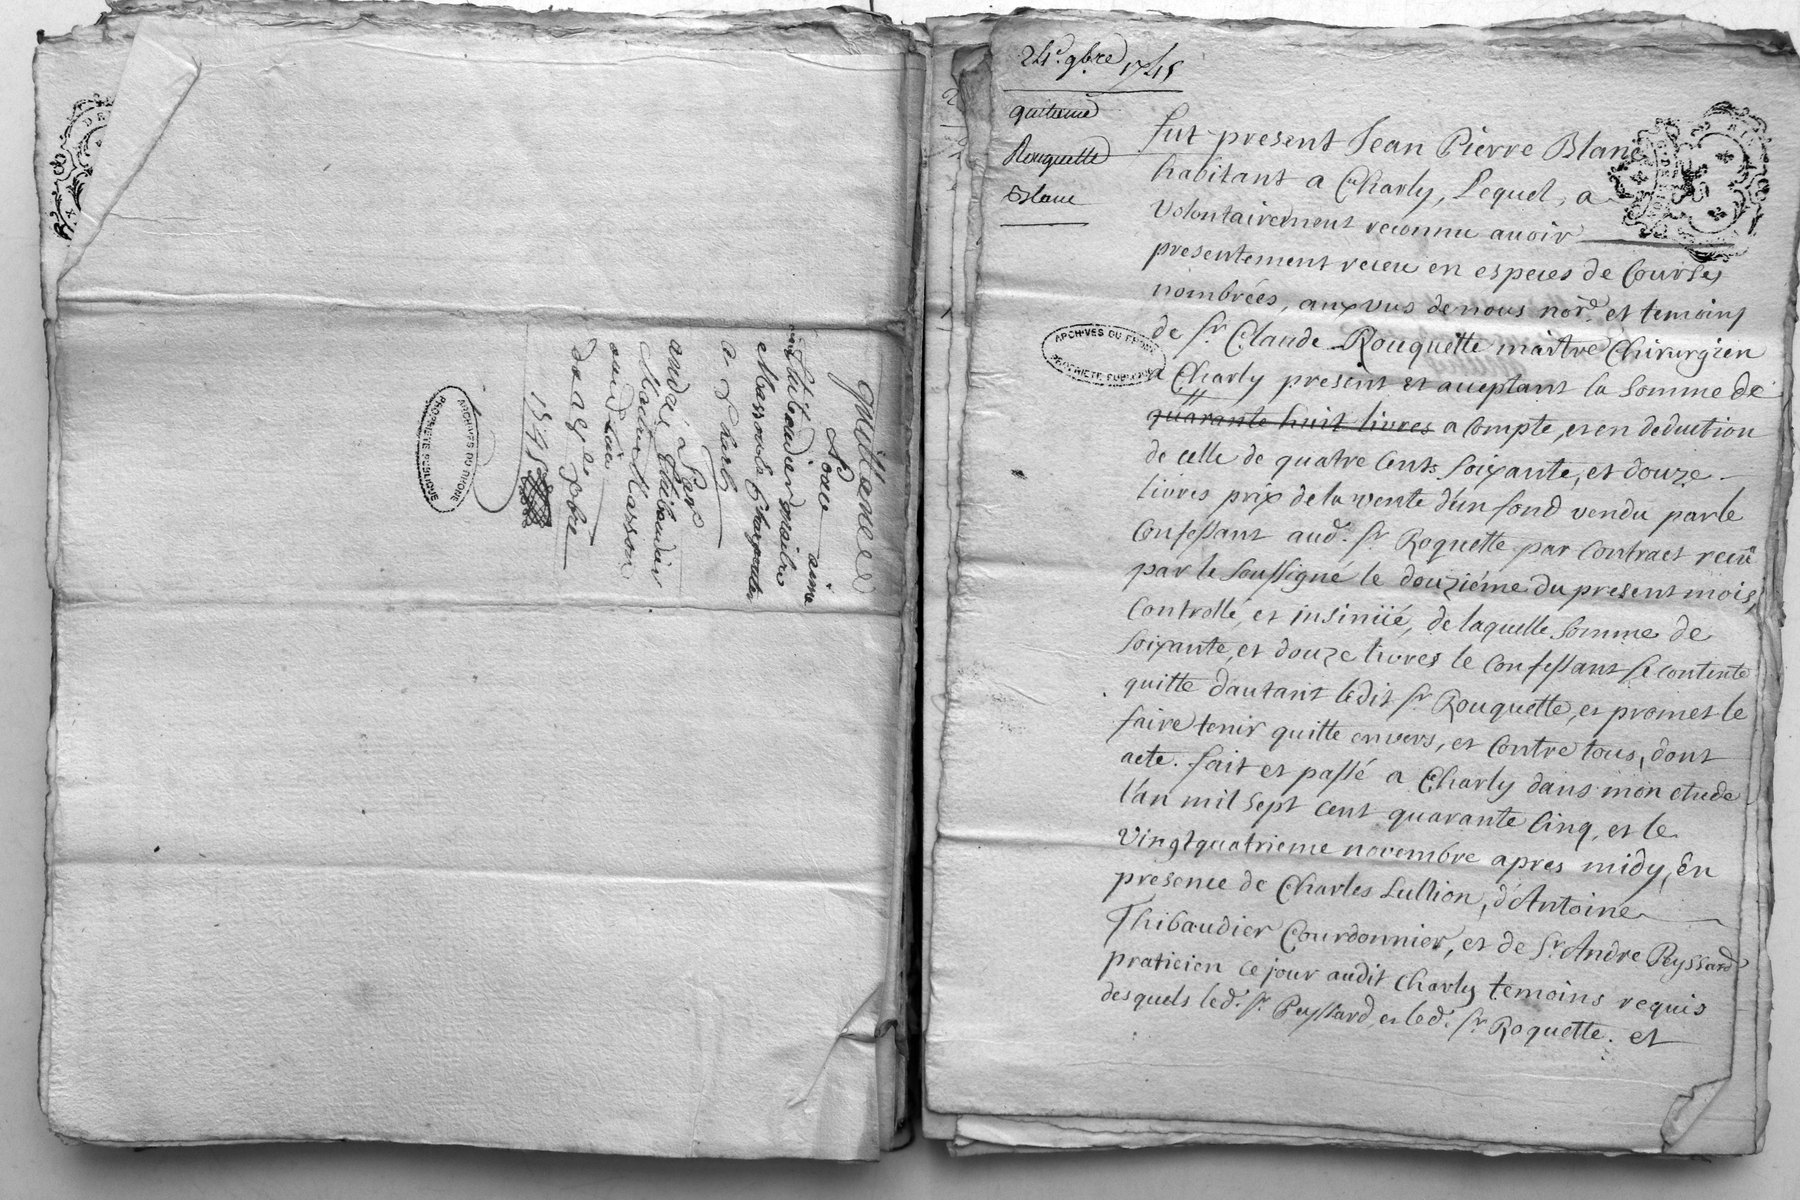 Quittance
Pour
Thibaudier maitre
a Charly
andré Thibaudier
24e 9bre 1745
quittance
Rouquette
Blanc
ARCHIVES DU RHONE
PROPRIÉTÉ PUBLIQUE
ARCHIVES DU RHONE
PROPRIÉTÉ PUBLIQUE
fut present Jean Pierre Blanc
habitant a Charly, Lequel, a
Volontairement reconnu auoir
presentement receu en especes de Cours et
nombrées, aux vus de nous nore. et temoins
de Sr. Claude Rouquette maitre Chirurgien
a Charly present et acceptant la Somme de
quarante huit livres a Compte, et en deduction
de celle de quatre Cents Soixante, et douze
livres prix de la vente d'un fond vendu par le
Confessant aud. Sr. Roquette par Contract receu
par le Soussigné le douziéme du present mois,
Controllé, et insinüé, de laquelle Somme de
Soixante, et douze livres le Confessant Se contente
quitte d'autant ledit Sr. Rouquette, et promet le
faire tenir quitte envers, et Contre tous, dont
acte. fait et passé a Charly dans mon etude
l'an mil sept cent quarante Cinq, et le
Vingtquatrieme novembre apres midy, En
presence de Charles Lullion, d'Antoine
Thibaudier Courdonnier, et de Sr. Andre Peyssard
praticien ce jour audit Charly temoins requis
desquels led. Sr. Peyssard, et led. Sr. Roquette. et